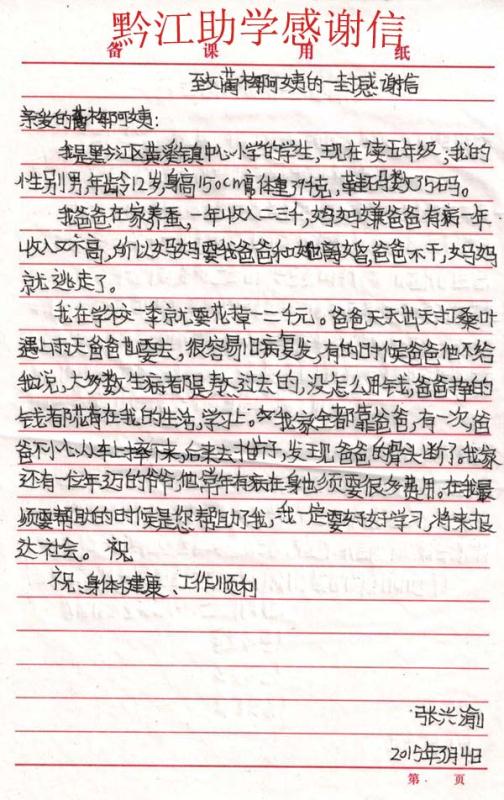 黔江助学感谢信
备课用纸
致蔺梅娜阿姨的一封感谢信
亲爱的蔺梅娜阿姨:
我是黔江区黄溪镇中心小学的学生,现在读五年级;我的
性别男,年龄12岁,身高150cm高,体重39千克,鞋码数35码。
我爸爸在家养蚕,一年收入二三千,妈妈嫌爸爸有病一年
收入又不高,所以妈妈要我爸爸和她离婚,爸爸不干,妈妈
就逃走了。
我在学校一季就要花掉一二千元。爸爸天天出天打桑叶
遇上雨天爸爸也要去,很容易旧病复发,有的时候爸爸他不给
我说,大多数生病都是熬过去的,没怎么用钱,爸爸挣的
钱都花有在我的生活,学习上。我家全都靠爸爸,有一次,爸
爸不小心从车上摔下来,后来去拍片子,发现爸爸的骨头断了。我家
还有一位年迈的爷爷,他常年有病在身也须要很多费用。在我最
须要帮助的时候是您帮助了我,我一定要好好学习,将来报
达社会。 祝
祝:身体健康、工作顺利
张兴渝
2015年3月4日
第 页